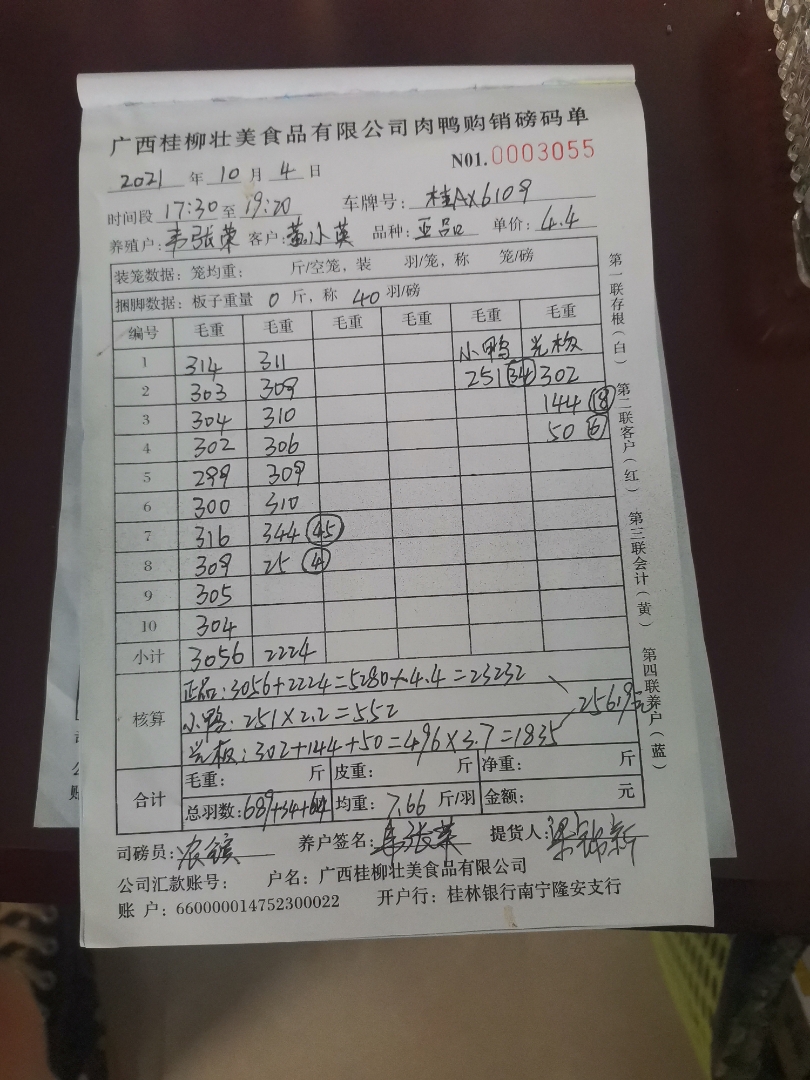 广西桂柳壮美食品有限公司肉鸭购销磅码单
N01.0003055
2021 年 10 月 4 日
时间段 17:30 至 19:20 车牌号: 桂AX6109
养殖户: 韦张荣 客户: 黄小英 品种: 亚品 单价: 4.4
装笼数据: 笼均重: 斤/空笼, 装 羽/笼, 称 笼/磅
捆脚数据: 板子重量 0 斤, 称 40 羽/磅
编号 毛重 毛重 毛重 毛重 毛重 毛重
1 314 311 小鸭 光板
2 303 309 251 34 302
3 304 310 144 18
4 302 306 50 6
5 299 309
6 300 310
7 316 344 45
8 309 25 4
9 305
10 304
小计 3056 2224
核算 正品: 3056+2224=5280×4.4=23232
小鸭: 251×2.2=552
光板: 302+144+50=496×3.7=1835
25619元
合计 毛重: 斤 皮重: 斤 净重: 斤
总羽数: 689+34+64 均重: 7.66 斤/羽 金额: 元
司磅员: 养户签名: 韦张荣 提货人: 梁锦新
公司汇款账号: 户名: 广西桂柳壮美食品有限公司
账 户: 660000014752300022 开户行: 桂林银行南宁隆安支行
第一联存根(白) 第二联客户(红) 第三联会计(黄) 第四联养户(蓝)